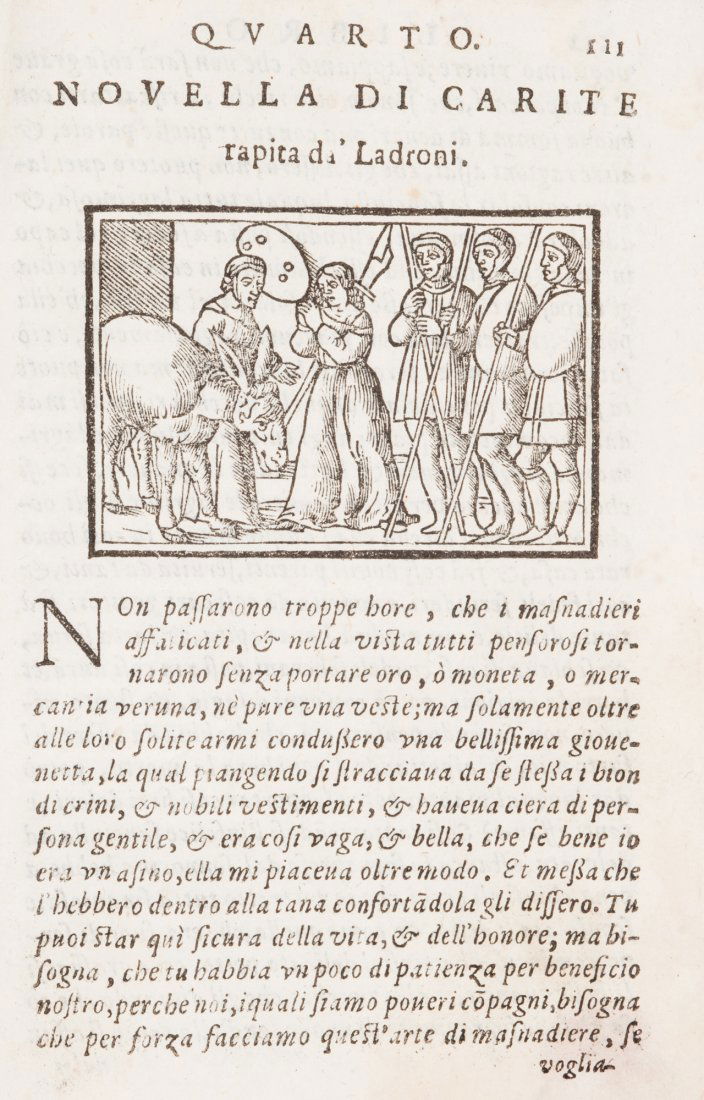 QVARTO.
111
NOVELLA DI CARITE
rapita da' Ladroni.
NOn paſſarono troppe hore, che i maſnadieri
affaticati, & nella viſta tutti penſoroſi tor-
narono ſenza portare oro, ò moneta, o mer-
cantia veruna, nè pure vna veſte; ma ſolamente oltre
alle loro ſolite armi condußero vna belliſſima gioue-
netta, la qual piangendo ſi ſtracciaua da ſe ſteßa i bion
di crini, & nobili veſtimenti, & haueua ciera di per-
ſona gentile, & era coſi vaga, & bella, che ſe bene io
era vn aſino, ella mi piaceua oltre modo. Et meßa che
l'hebbero dentro alla tana confortādola gli diſſero. Tu
puoi ſtar quì ſicura della vita, & dell'honore; ma bi-
ſogna, che tu habbia vn poco di patienza per beneficio
noſtro, perche noi, iquali ſiamo poueri cōpagni, biſogna
che per forza facciamo queſt'arte di maſnadiere, ſe
voglia-